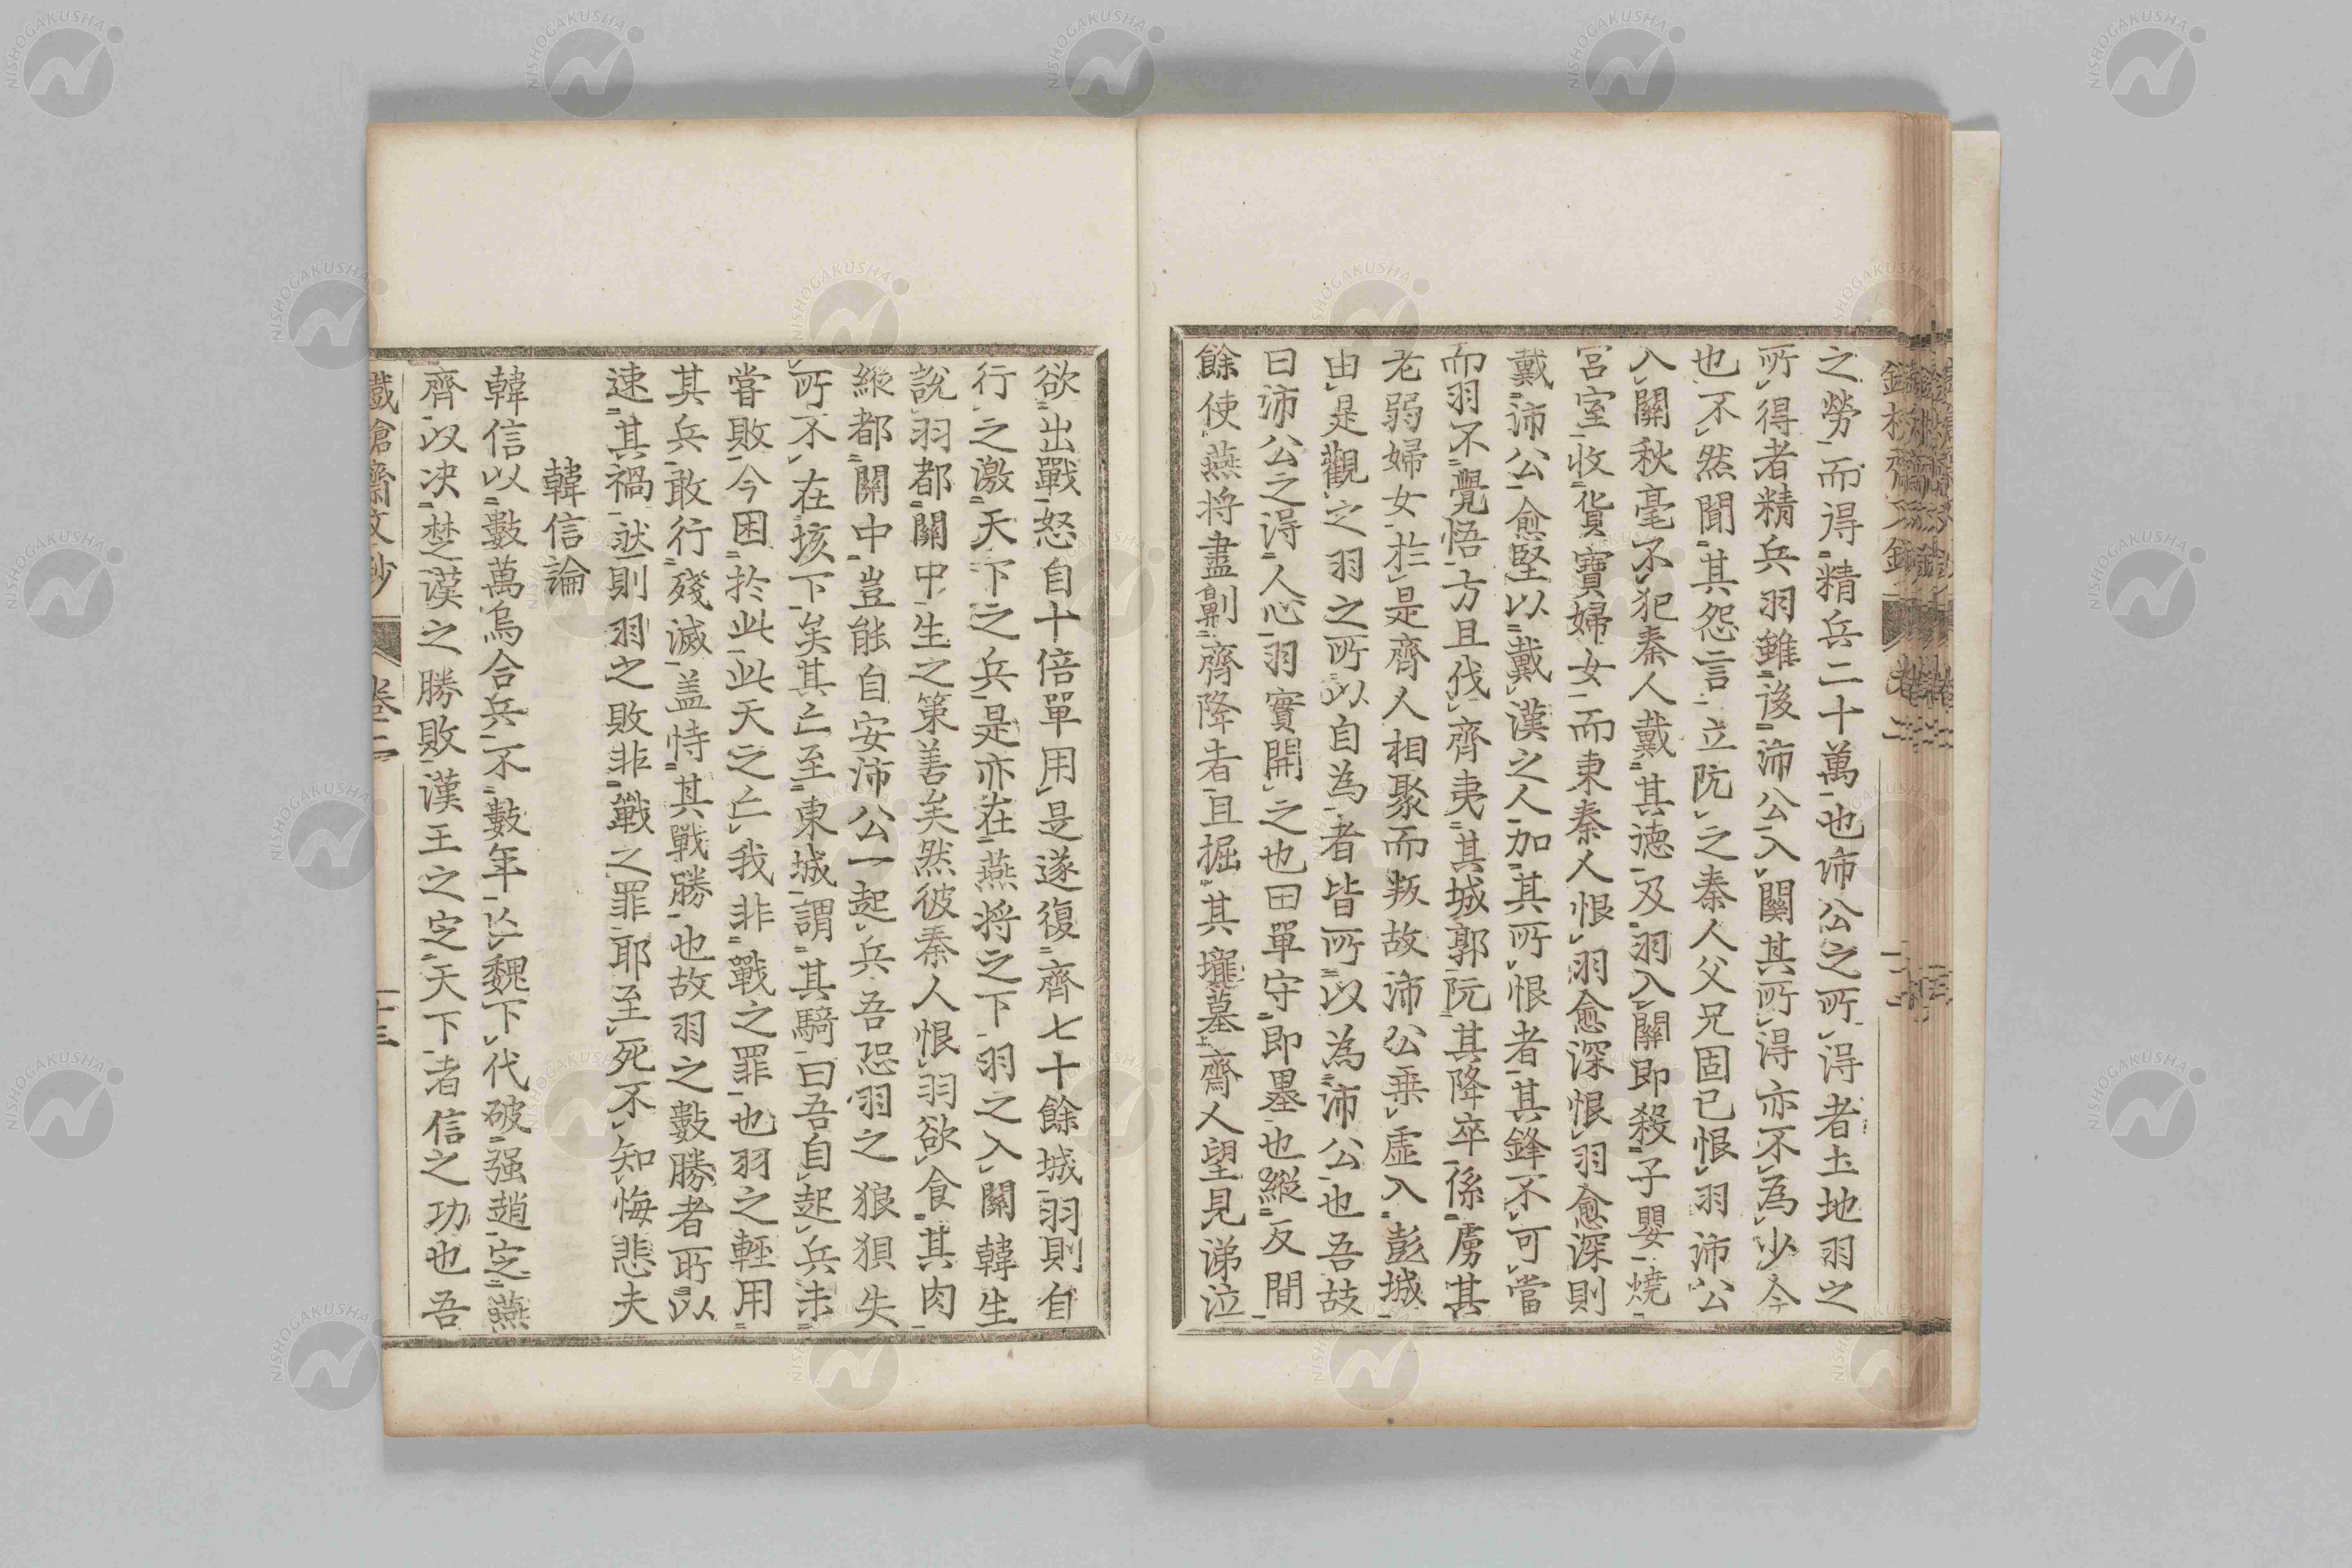 之勞而得精兵二十萬也沛公之所得者土地羽之
所得者精兵羽雖後沛公入關其所得亦不為少今
也不然聞其怨言立阬之秦人父兄固已恨羽沛公
入關秋毫不犯秦人戴其德及羽入關即殺子嬰燒
宮室收貨寶婦女而東秦人恨羽愈深恨羽愈深則
戴沛公愈堅以戴漢之人加其所恨者其鋒不可當
而羽不覺悟方且伐齊夷其城郭阬其降卒係虜其
老弱婦女於是齊人相聚而叛故沛公乘虛入彭城
由是觀之羽之所以自為者皆所以為沛公也吾故
曰沛公之得人心羽實開之也田單守即墨也縱反間
餘使燕將盡劓齊降者且掘其壠墓齊人望見涕泣
欲出戰怒自十倍單用是遂復齊七十餘城羽則自
行之激天下之兵是亦在燕將之下羽之入關韓生
說羽都關中生之策善矣然彼秦人恨羽欲食其肉
縱都關中豈能自安沛公一起兵吾恐羽之狼狽失
所不在垓下矣其亡至東城謂其騎曰吾自起兵未
嘗敗今困於此此天之亡我非戰之罪也羽之輕用
其兵敢行殘滅盖恃其戰勝也故羽之數勝者所以
速其禍然則羽之敗非戰之罪耶至死不知悔悲夫
韓信論
韓信以數萬烏合兵不數年亡魏下代破强趙定燕
齊以决楚漢之勝敗漢王之定天下者信之功也吾
鐵槍齋文鈔 卷二 十三